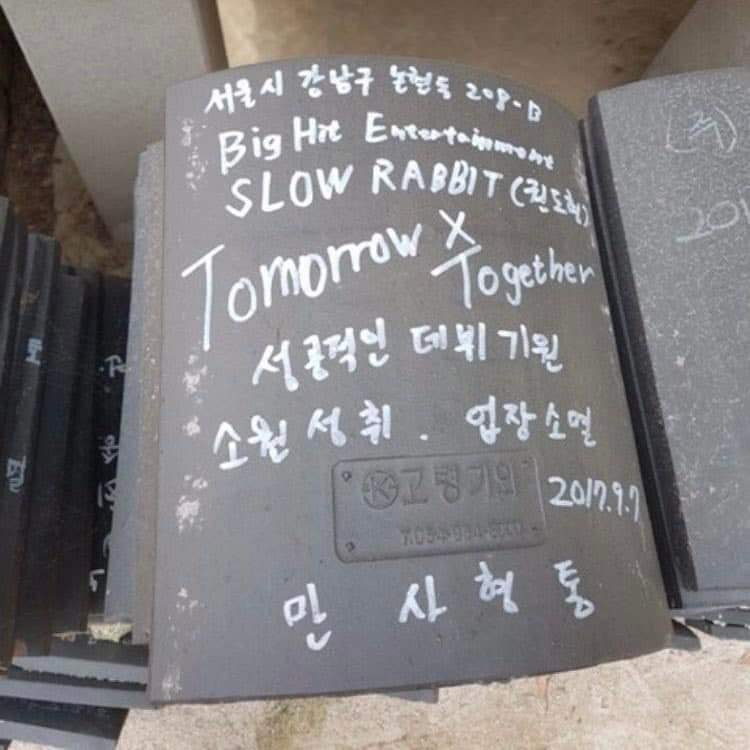 서울시 강남구 논현동 208-B
Big Hit Entertainment
SLOW RABBIT (권도형)
Tomorrow X Together
성공적인 데뷔 기원
소원성취. 업장소멸
고령기와
2017.9.7
만 사 형 통
(주)
201
멸